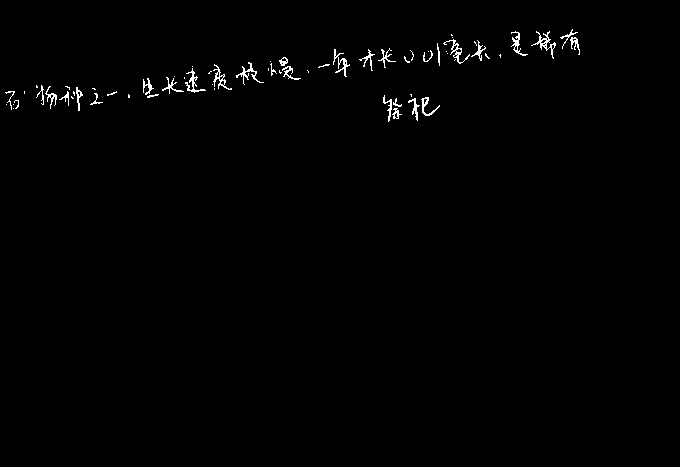 石物种之一,生长速度极慢,一年才长0.01毫米,是稀有
祭祀